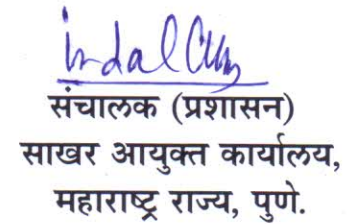 संचालक (प्रशासन)
साखर आयुक्त कार्यालय,
महाराष्ट्र राज्य, पुणे.